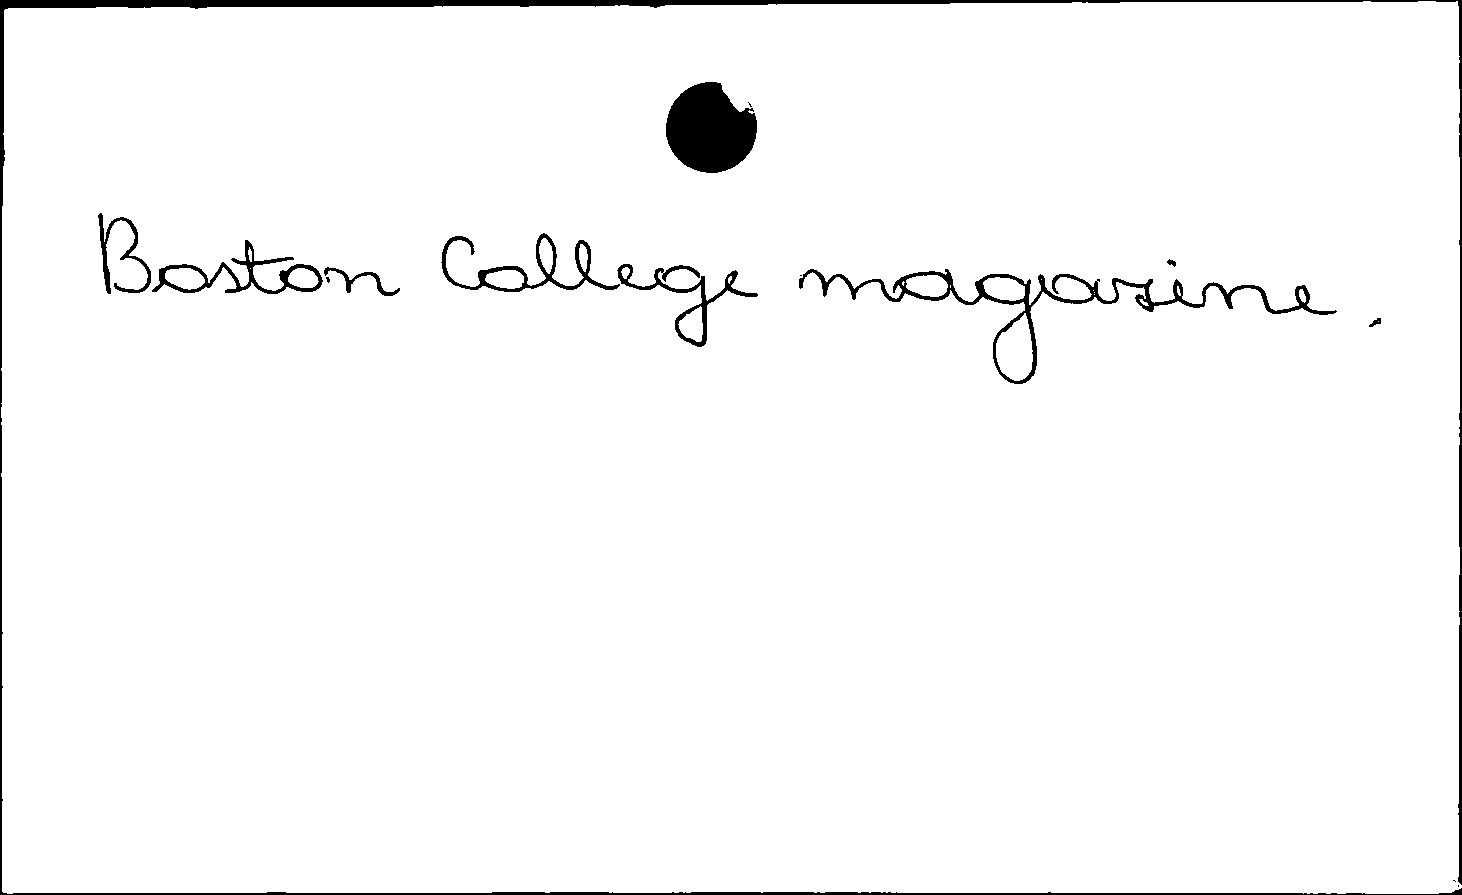 Boston College magazine.